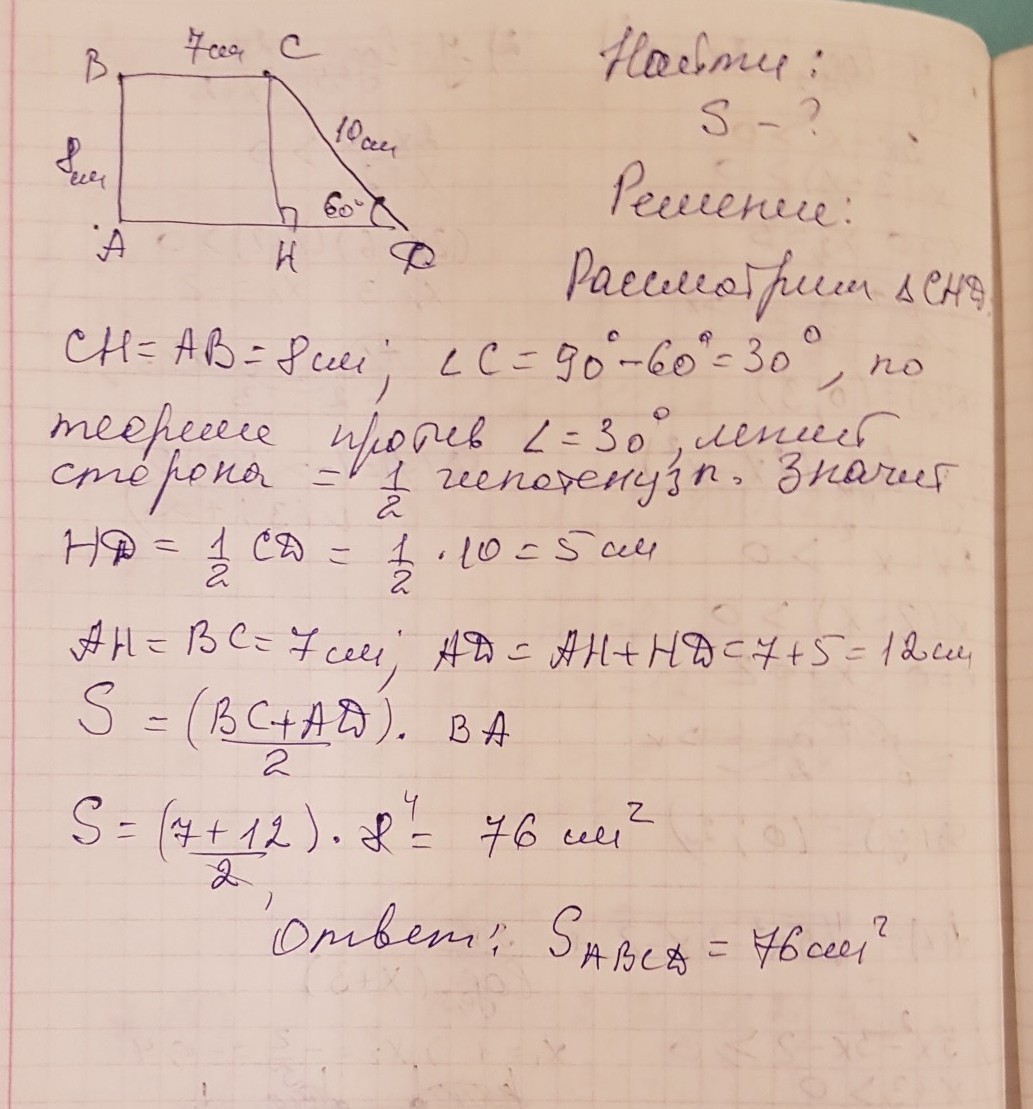 B 7см C
8см
10см
60°
A H D
Найти:
S - ?
Решение:
Рассмотрим △CHD.
CH = AB = 8 см; ∠C = 90° - 60° = 30°, по
теореме против ∠ = 30°, лежит
сторона = 1/2 гипотенузы. Значит
HD = 1/2 CD = 1/2 · 10 = 5 см
AH = BC = 7 см; AD = AH + HD = 7 + 5 = 12 см
S = (BC + AD)/2 · BA
S = (7 + 12)/2 · 8 4 = 76 см²
Ответ: S ABCD = 76 см²